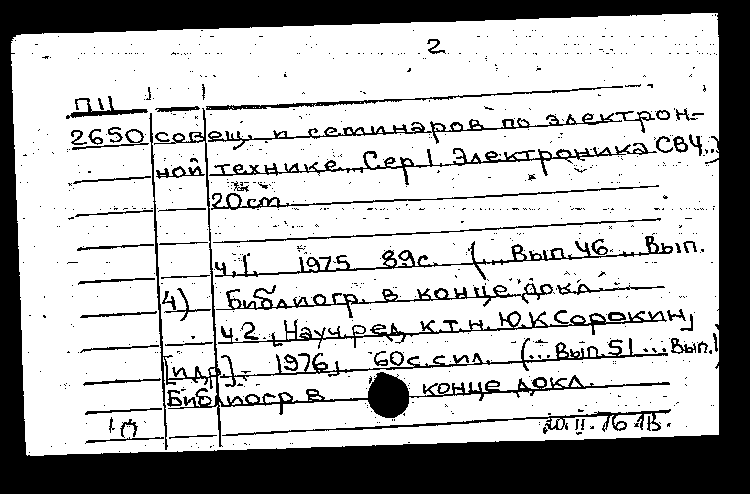 2
П11
2650 совещ. и семинаров по электрон-
ной технике... Сер 1. Электроника СВЧ..)
20 см.
ч. 1. 1975 89с. (...Вып. 46 ... Вып.
4) Библиогр. в конце докл.
ч. 2 [Науч. ред. к.т.н. Ю.К Сорокин,
[и др.]. - 1976, 60 с. с ил. (...Вып. 51 ... Вып.1)
Библиогр в конце докл.